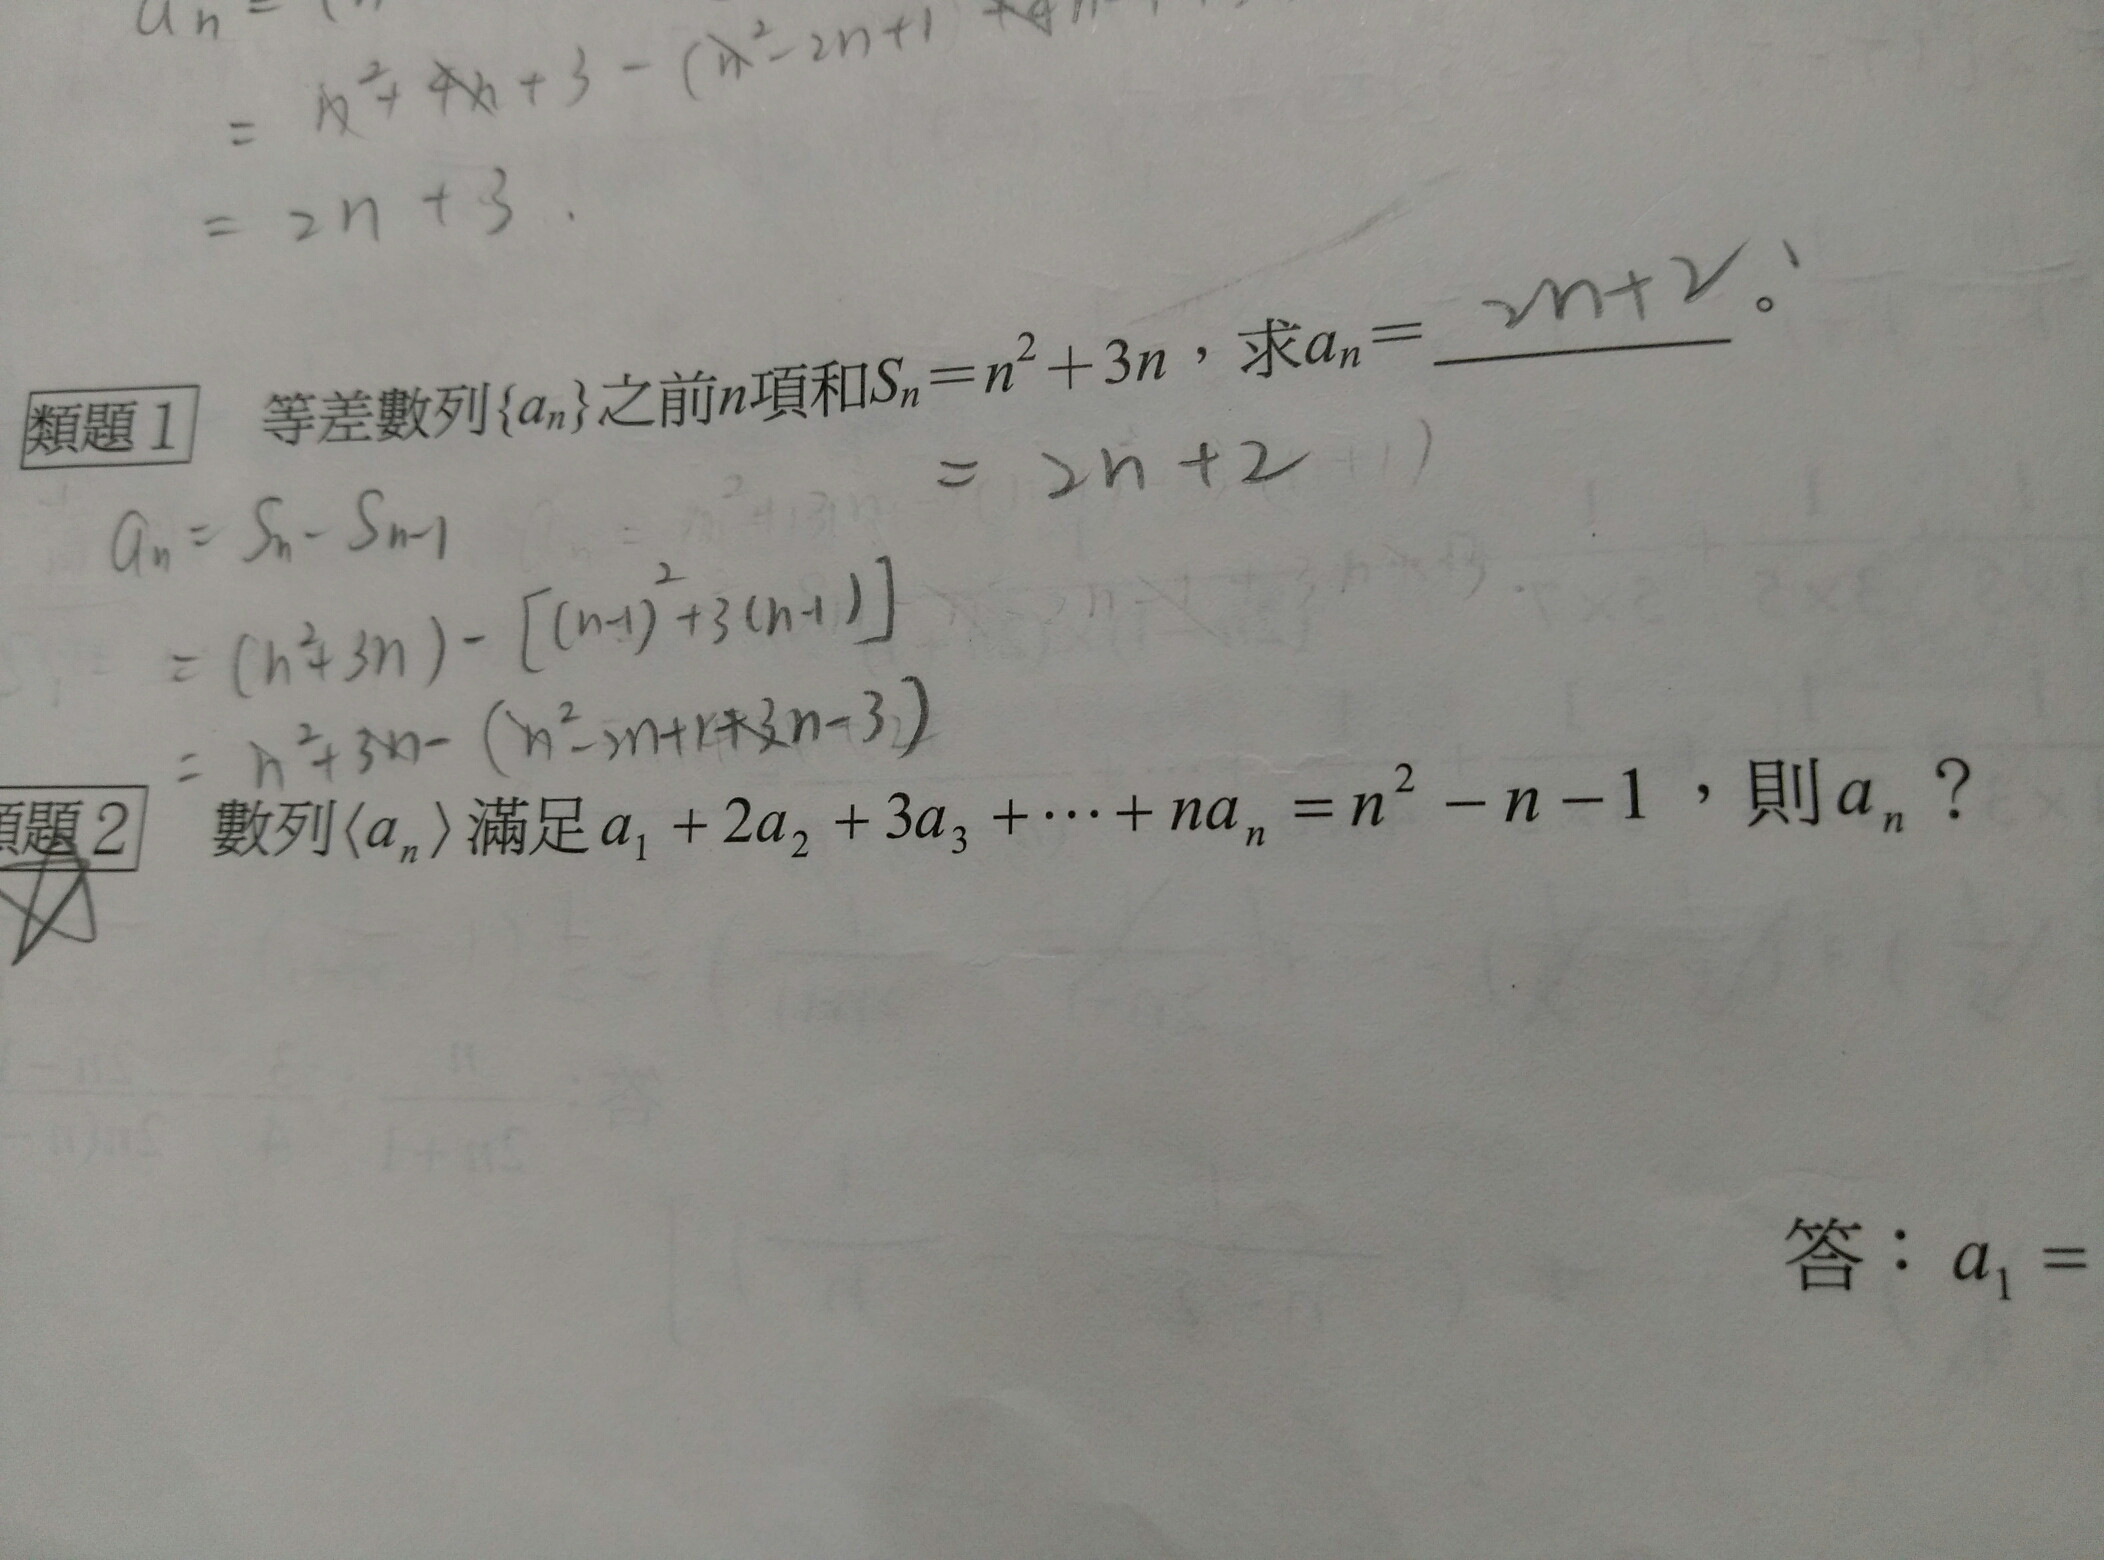 an = (n
= n²+4n+3-(n²-2n+1
= 2n+3.
類題1 等差數列{aₙ}之前n項和Sₙ=n²+3n,求aₙ= 2n+2。
= 2n+2
aₙ= Sₙ-Sₙ₋₁
= (n²+3n)-[(n-1)²+3(n-1)]
= n²+3n-(n²-2n+1+3n-3)
題2 數列⟨aₙ⟩滿足a₁+2a₂+3a₃+⋯+naₙ=n²-n-1,則aₙ?
答:a₁=